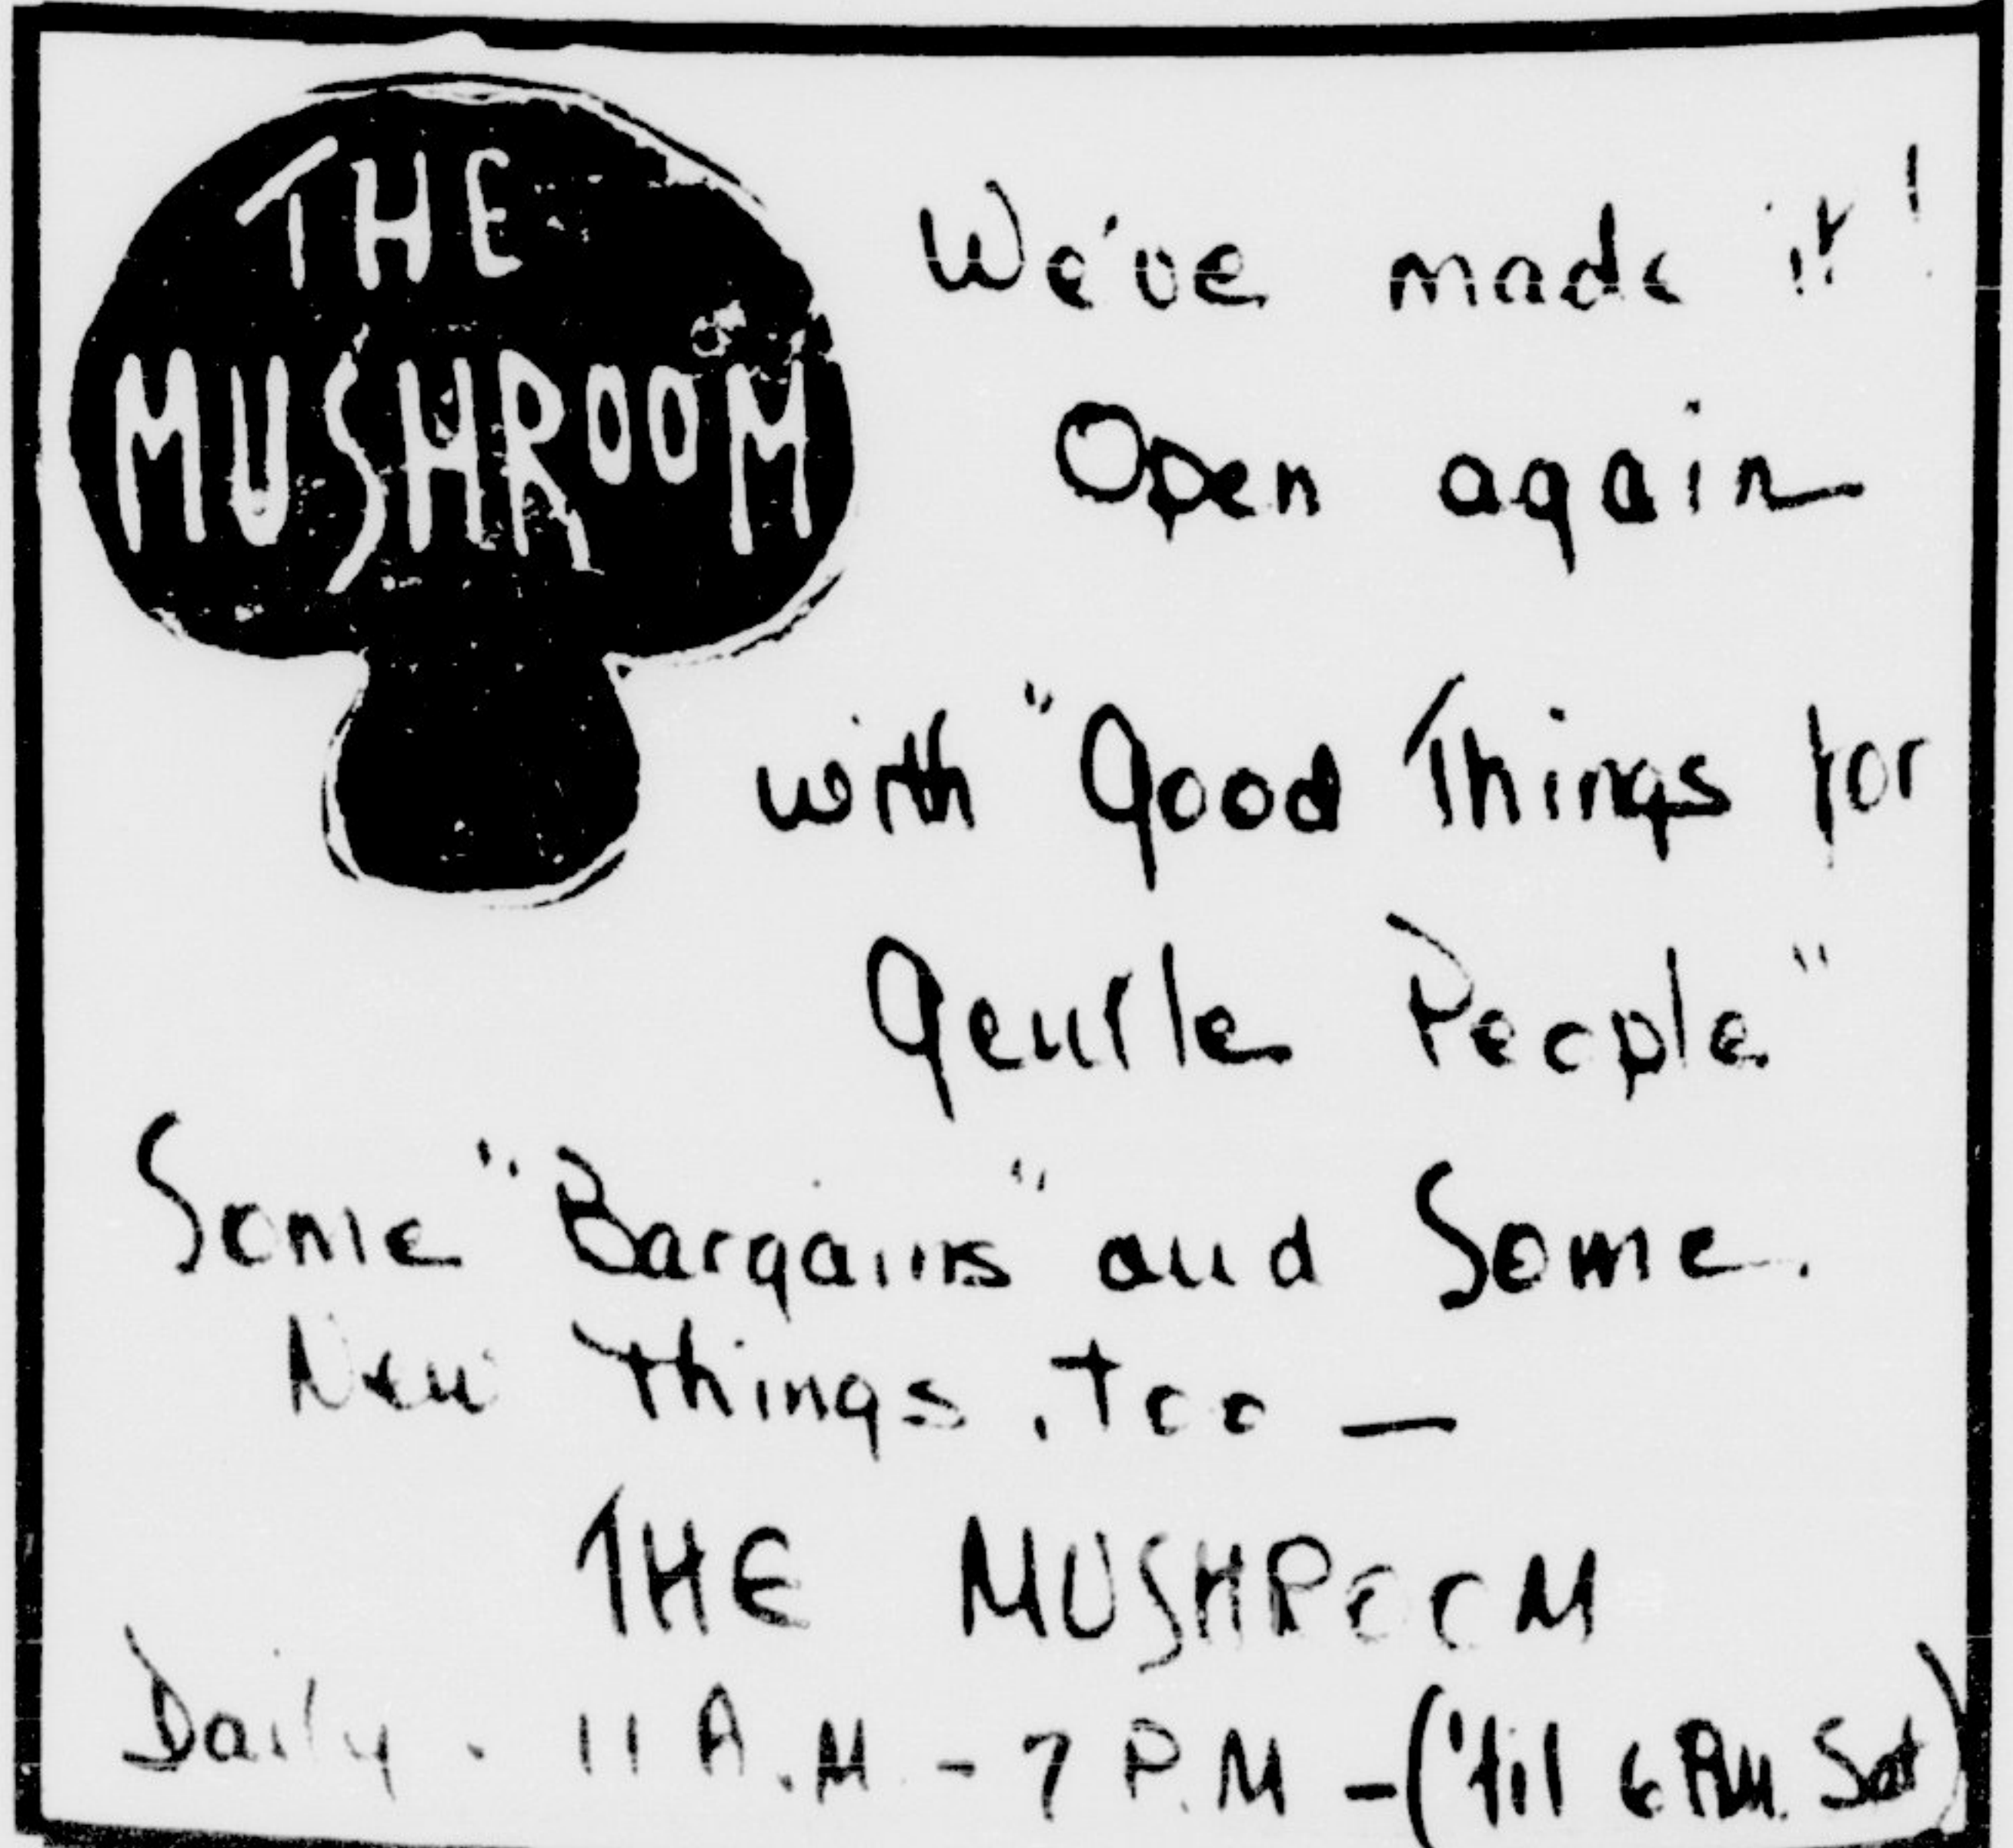 THE
MUSHROOM
We've made it!
Open again
with "Good Things for
Gentle People"
Some "Bargains" and Some
New Things, too —
THE MUSHROOM
Daily - 11 A.M. - 7 P.M - ('til 6 P.M. Sat)